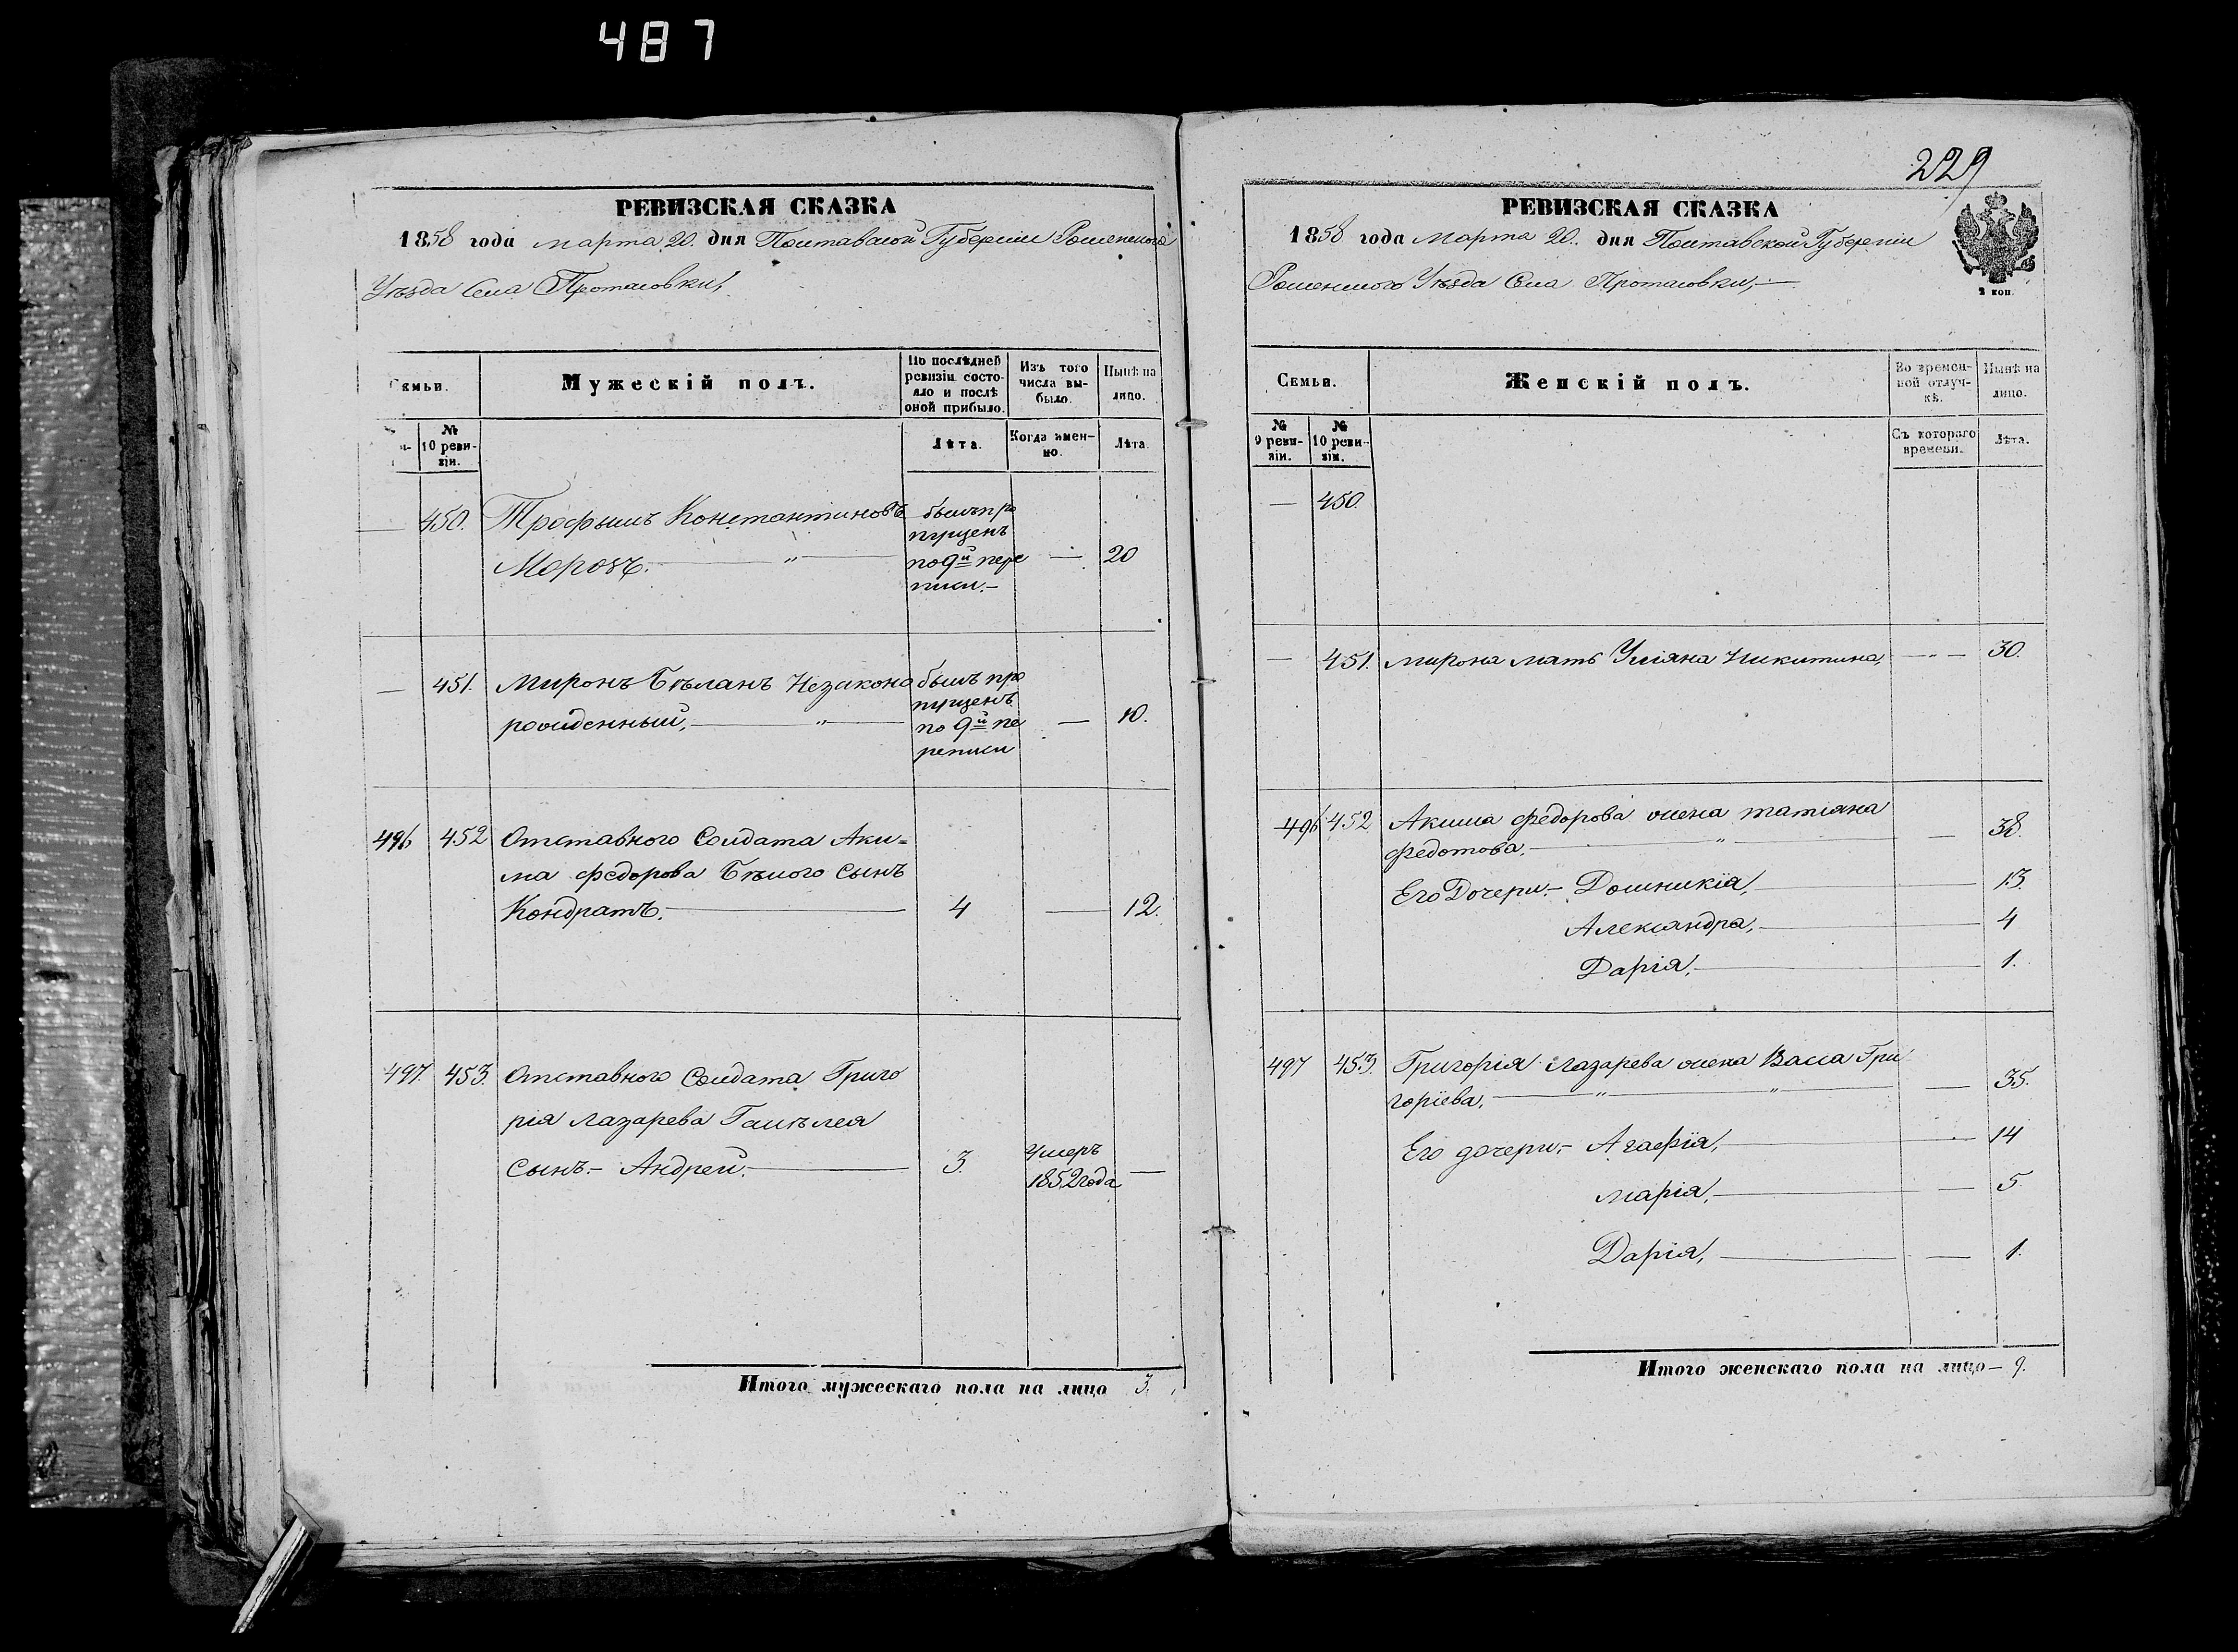 487
РЕВИЗСКАЯ СКАЗКА
1858 года марта 20. дня Полтавской Губерніи Роменского
Уѣзда Села Протасовки,
Семьи.
Мужескій полъ.
По послѣдней ревизіи состояло и послѣ оной прибыло.
Изъ того числа выбыло.
Нынѣ на лицо.
№ 10 ревизіи.
Лѣта.
Когда именно.
Лѣта.
— 450. Трофимъ Константиновъ былъ про
пущенъ
Морозъ. — " — по 9й пере — 20
писи. —
— 451. Миронъ Бѣланъ Незаконо былъ про
пущенъ
рожденный, — " — по 9й пе — 10.
реписи
496 452 Отставного Солдата Аки=
ма Федорова Бѣлого Сынъ
Кондратъ. — 4 — 12.
497. 453. Отставного Солдата Григо
рія Лазарева
Сынъ. — Андрей. — 3. умеръ
1852 года —
Итого мужескаго пола на лицо 3.
229
РЕВИЗСКАЯ СКАЗКА
1858 года Марта 20. дня Полтавской Губерніи
Роменского Уѣзда Села Протасовки, —
2 коп.
Семьи.
Женскій полъ.
Во временной отлучкѣ.
Нынѣ на лицо.
№ 9 ревизіи.
№ 10 ревизіи.
Съ котораго времени.
Лѣта.
— 450.
— 451. Мирона мать Уліяна Никитина, — 30.
496 452 Акима Федорова жена Татіяна
Федотова, — " — 38.
Его Дочери. — Домникія, — 13.
Александра, — 4
Дарія, — 1.
497 453. Григорія Лазарева жена Васа Гри
горіева, — " — " — 35.
Его дочери, — Агафія, — 14
Марія, — 5.
Дарія, — 1.
Итого женскаго пола на лицо — 9.